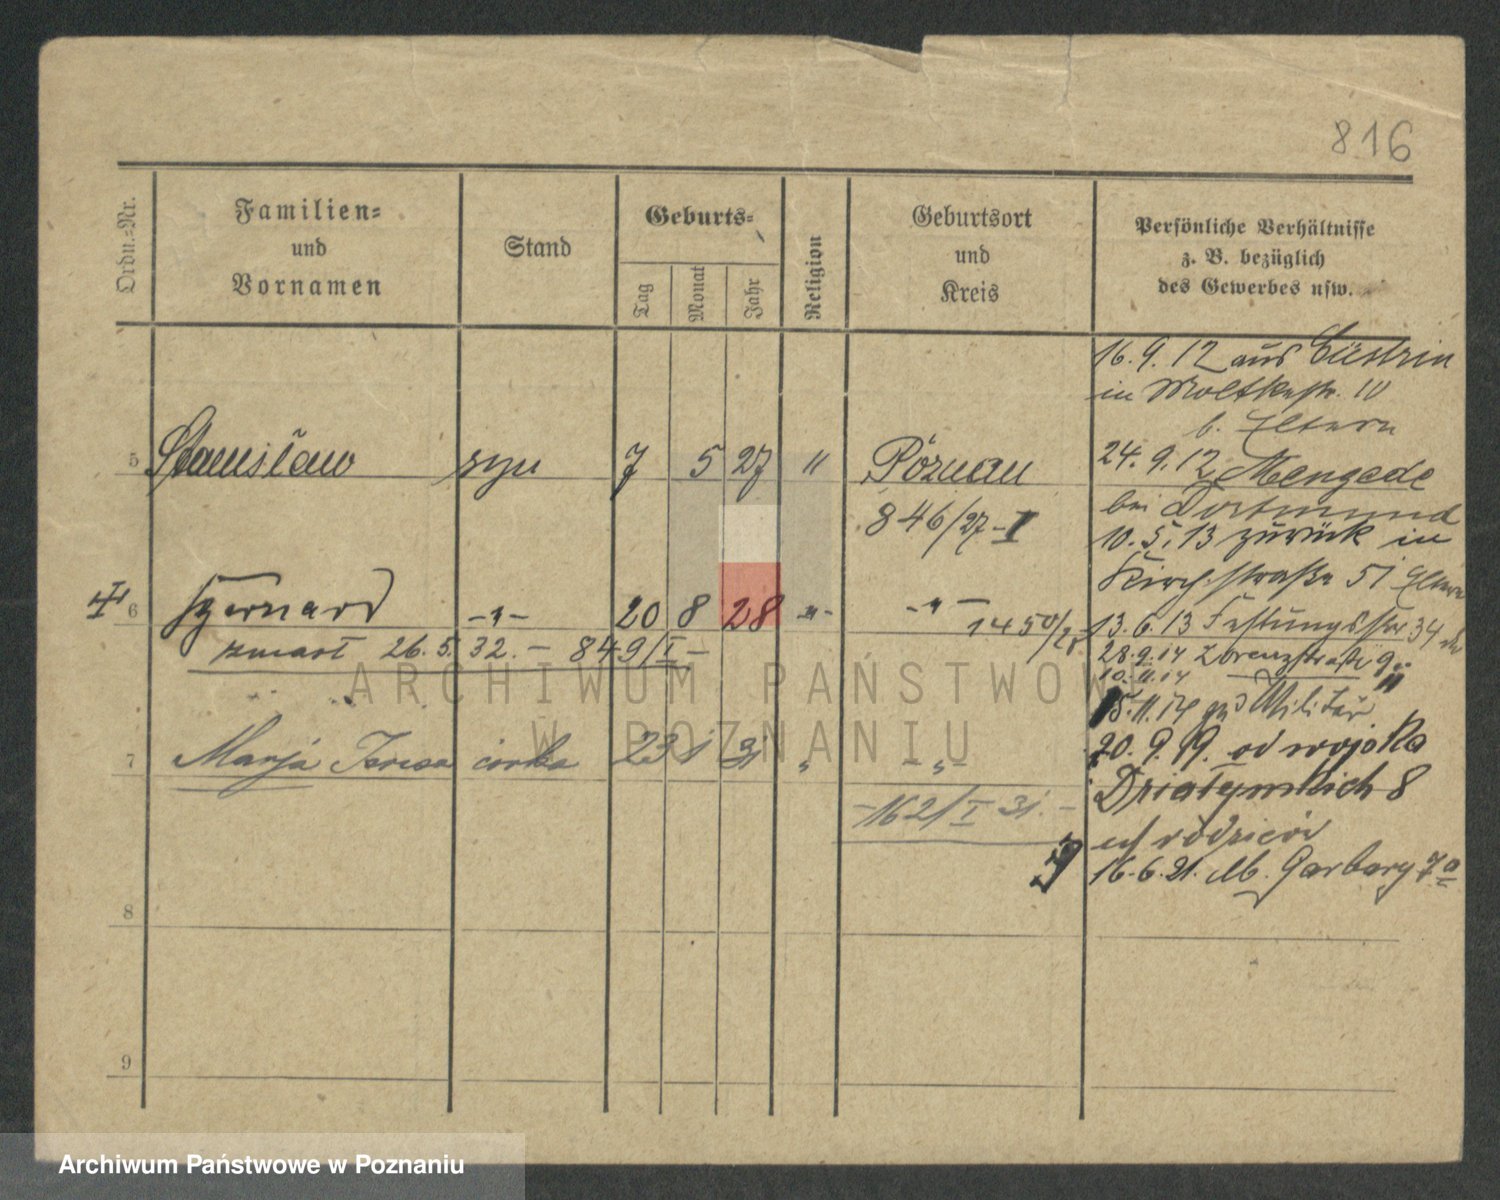 816
Ordn.=Nr.
Familien=
und
Vornamen
Stand
Geburts=
Tag
Monat
Jahr
Religion
Geburtsort
und
Kreis
Persönliche Verhältnisse
z. B. bezüglich
des Gewerbes usw.
16. 9. 12 aus Cüstrin
in Moltkestr. 10
b. Eltern
5 Stanisław syn 7 5 27 " Poznan
846/27-I
24. 9. 12 Mengede
bei Dortmund
10. 5. 13 zurück in
Kirchstraße 51 Eltern
6 Bernard -"- 20 8 28 -"- -"-
1450/28
zmarł 26. 5. 32. - 849/I -
13. 6. 13 Festungsstr 34
28. 9. 14 Lorenzstraße 9
10. 11. 14 "
15. 11. 14 zum Militär
7 Marja Teresa córka 23 1 31 " -"-
-162/I 31. -
20. 9. 19. od wojska
Działyńskich 8
u rodziców
16. 6. 21. M. Garbary 7a
8
9
ARCHIWUM PAŃSTWOWE
W POZNANIU
Archiwum Państwowe w Poznaniu